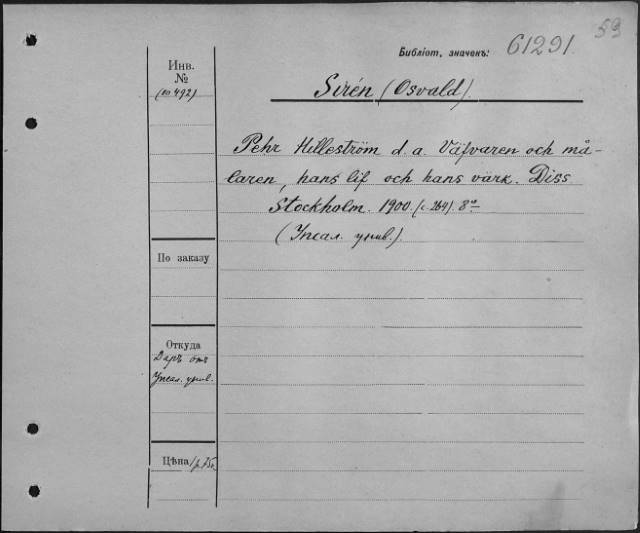 59
Библіот. значекъ: 61291.
Инв.
№
(по 492)
Sirén (Osvald).
Pehr Hilleström d. a. Väfvaren och må-
laren, hans lif och hans värk. Diss
Stockholm. 1900. (c. 264). 8º
(Упсал. унив.).
По заказу
Откуда
Даръ отъ
Упсал. унив.
Цѣна